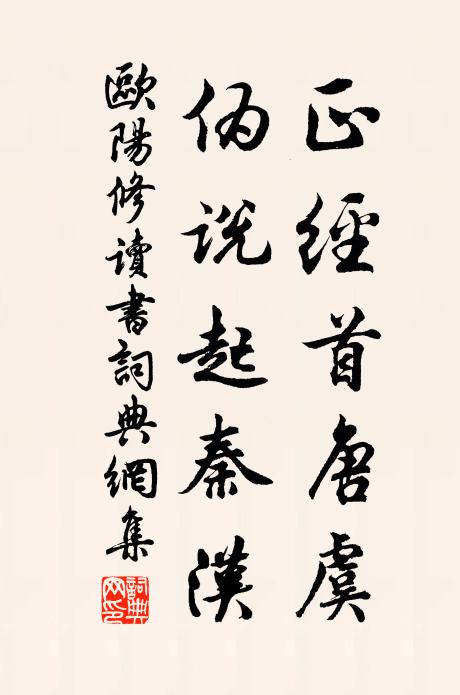 正經首唐虞
偽説起秦漢
歐陽修讀書詞典網集
詞典網印